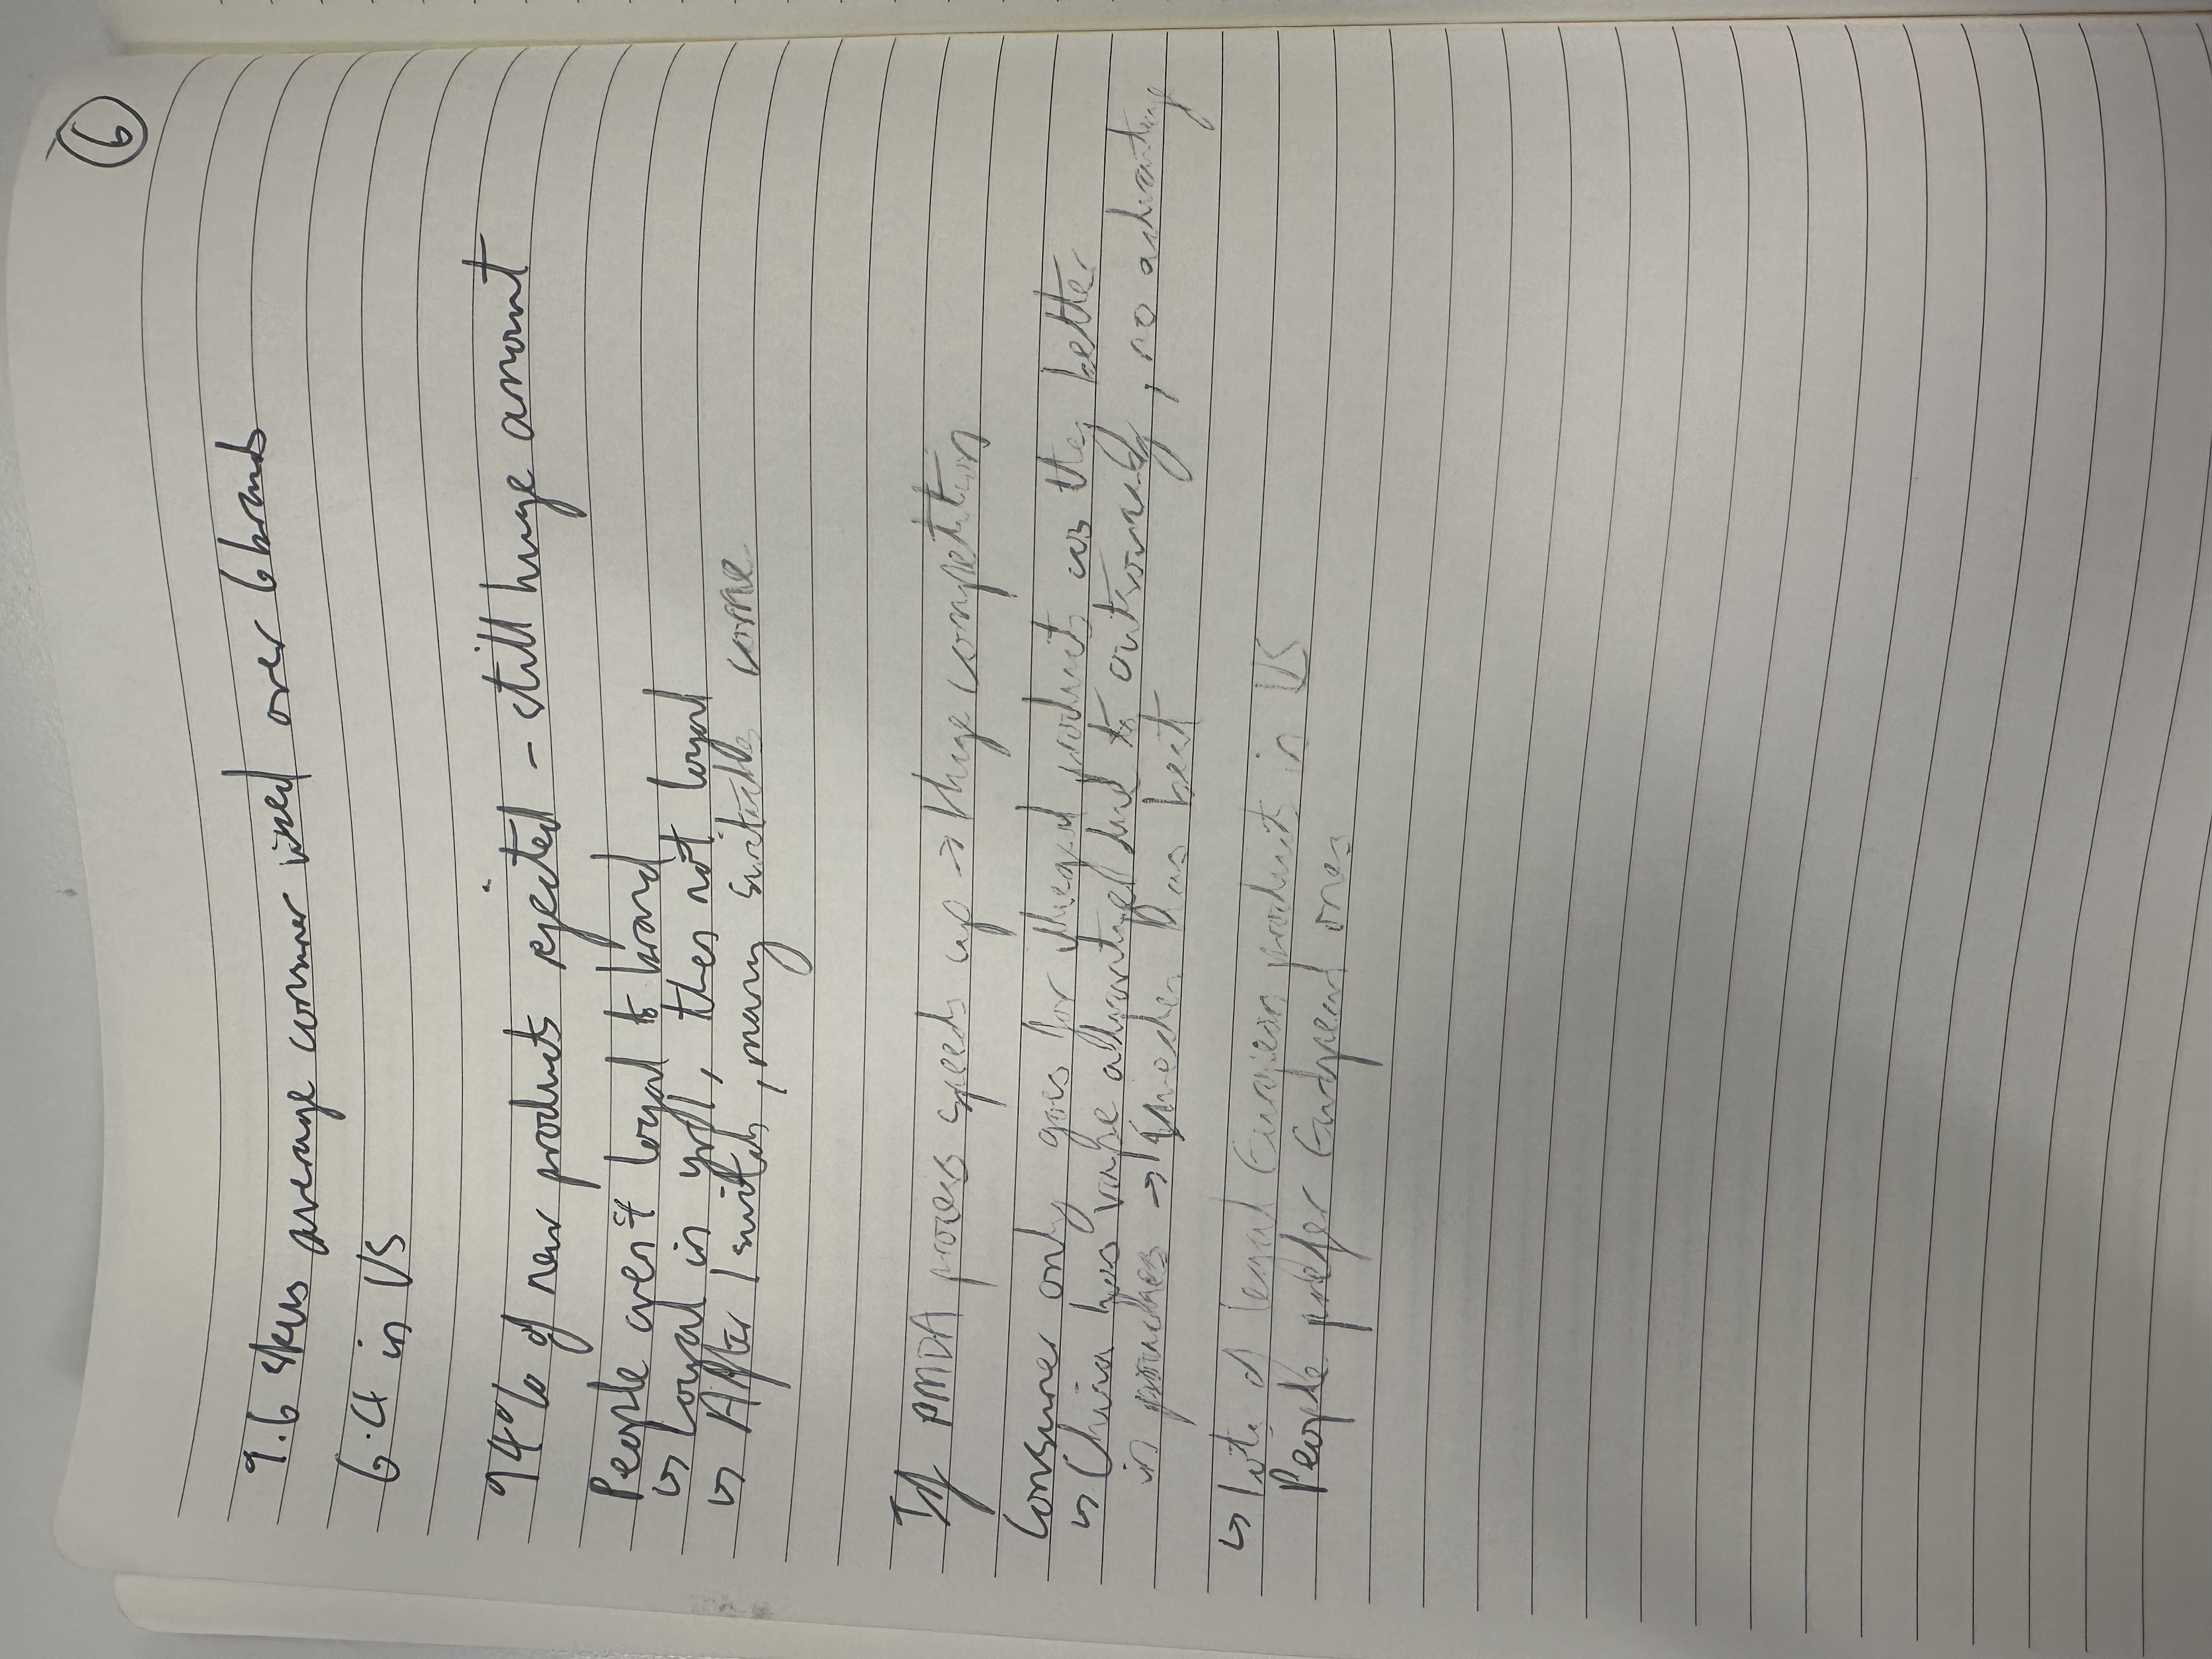 6
9.6 skus average consumer used over 6 brands
6.4 in US
94% of new products rejected - still huge amount
People aren't loyal to brand
↳ Loyal in yr 1, then not loyal
↳ After 1 switch, many switches come
If PMDA process speeds up → Huge competition
Consumer only goes for illegal products as they better
↳ China has vape advantage due to outsourcing, no advantage
in pouches → Sweden has best
↳ lots of legal European products in US
People prefer European ones